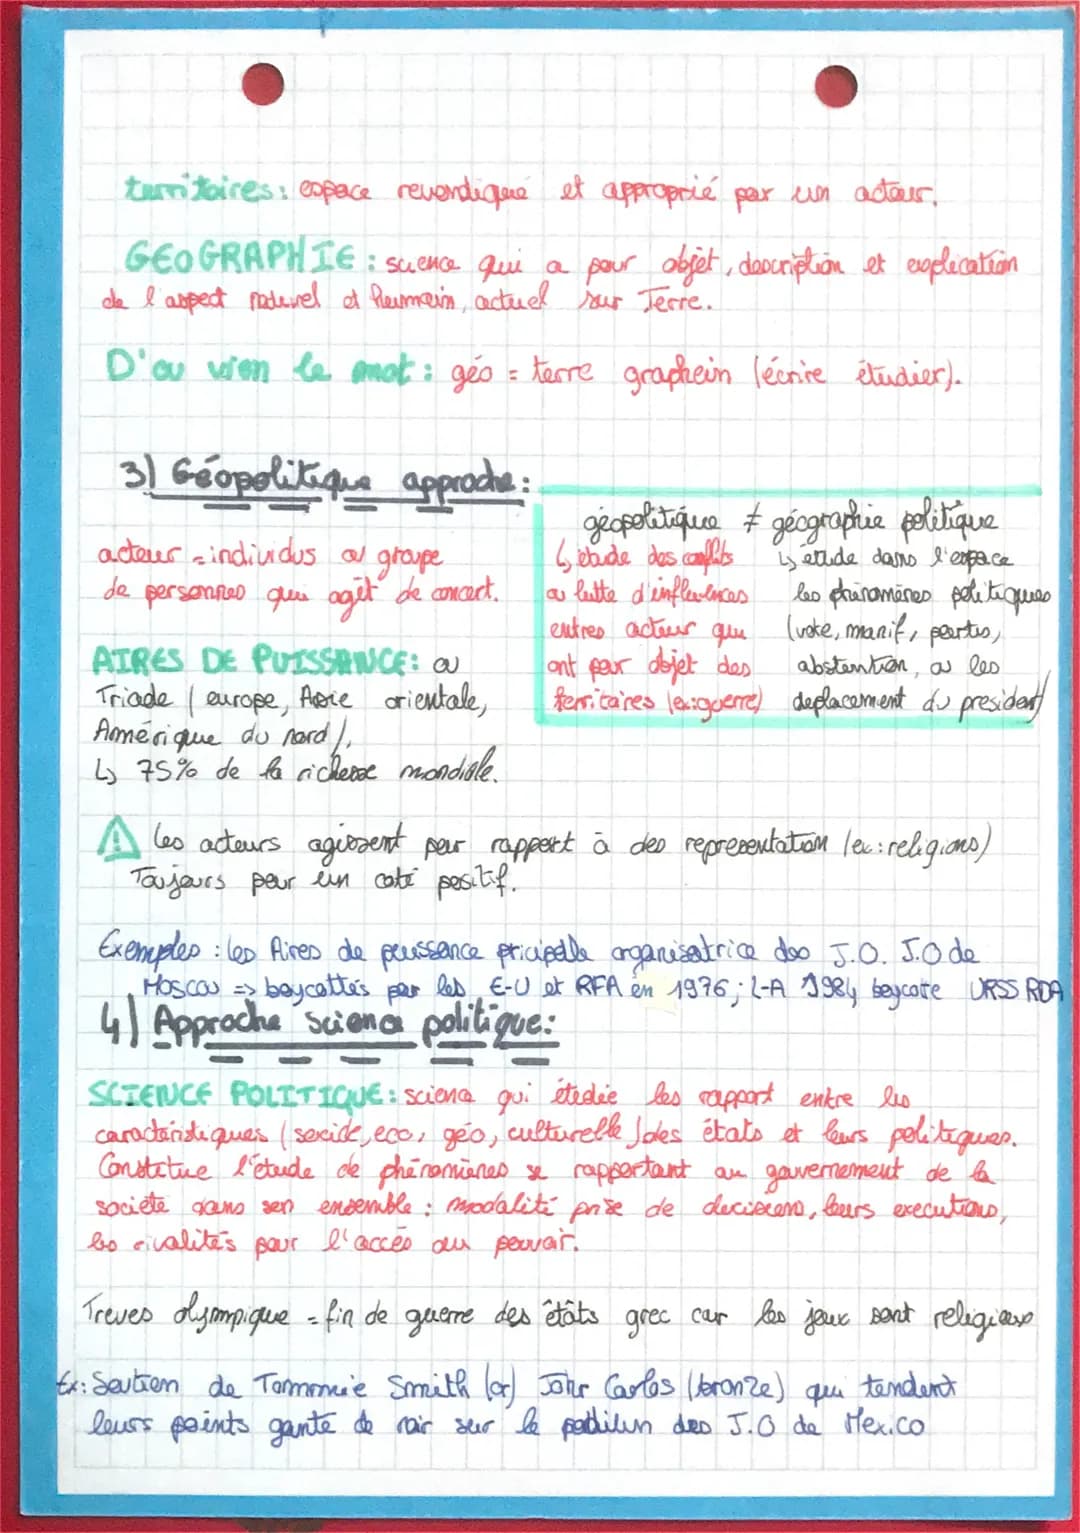 territoires: espace revendiqué et approprié par un acteur.
GEOGRAPHIE : science qui a pour objet, description et explication
de l'aspect naturel et humain, actuel sur Terre.
D'ou vien le mot : géo = terre graphein (écrire étudier).
3) Géopolitique approche :
acteur = individus ou groupe
de personnes qui agît de concert.
AIRES DE PUISSANCE: ou
Triade ( europe, Asie orientale,
Amérique du nord ).
↳ 75% de la richesse mondiale.
géopolitique ≠ géographie politique
↳ étude des conflits
ou lutte d'influences
entres acteur qui
ont pour objet des
territoires (ex:guerre)
↳ etude dans l'espace
les phénomènes politiques
(vote, manif, partis,
abstention, ou les
deplacement du president)
⚠ Les acteurs agissent par rapport à des representation (ex: religions)
Toujours pour un coté positif.
Exemples : les Aires de puissance pricipale organisatrice des J.O. J.O de
Moscou => boycottés par les E-U et RFA en 1976; L-A 1984 boycote URSS RDA
4) Approche science politique:
SCIENCE POLITIQUE: science qui étudie les rapport entre les
caractéristiques (sociale, eco, géo, culturelle) des états et leurs politiques.
Constitue l'étude de phénomènes se rapportant au gouvernement de la
société dans son ensemble : modalité prise de decisions, leurs executions,
les rivalités pour l'accés au pouvoir.
Treves olympique = fin de guerre des êtâts grec car les jeux sont religieux
Ex: Soutien de Tommie Smith (or) John Carlos (bronze) qui tendent
leurs points ganté de noir sur le podium des J.O de Mexico